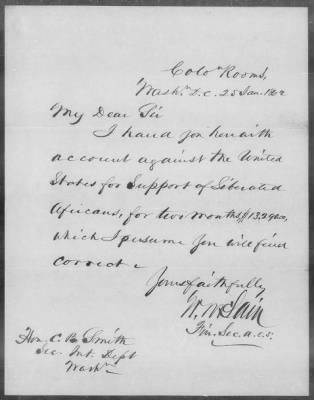 Colo Rooms,
Wash. D.C. 25 Jan. 1862
My Dear Sir
I hand you herewith
account against the United
States for Support of Liberated
Africans, for two months
which I presume you will find
correct.
Yours faithfully
W. McLain
Fin. Sec. A.C.S.
Hon. C. B. Smith
Sec. Int. Dept
Washn